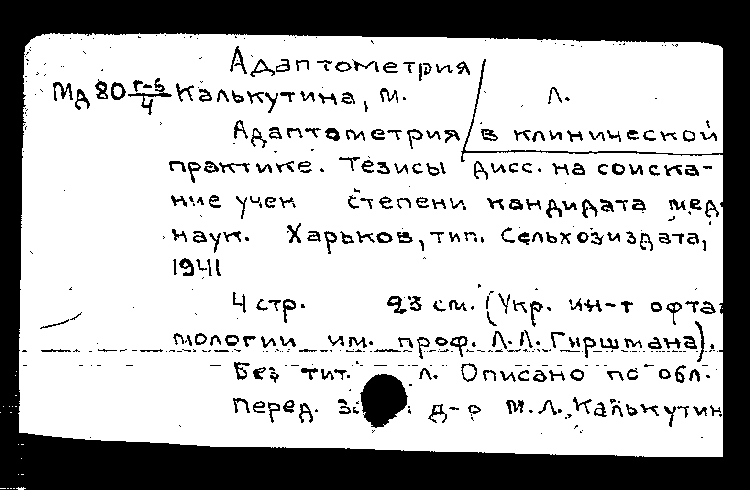 Адаптометрия
Мд 80 г-6/4 Калькутина, М. Л.
Адаптометрия в клинической
практике. Тезисы дисс. на соиска-
ние учен степени кандидата мед
наук. Харьков, тип. Сельхозиздата,
1941
4 стр. 23 см. (Укр. ин-т офта
мологии им. проф. Л.Л. Гиршмана).
Без тит. л. Описано по обл.
перед. д-р М.Л. Калькутин